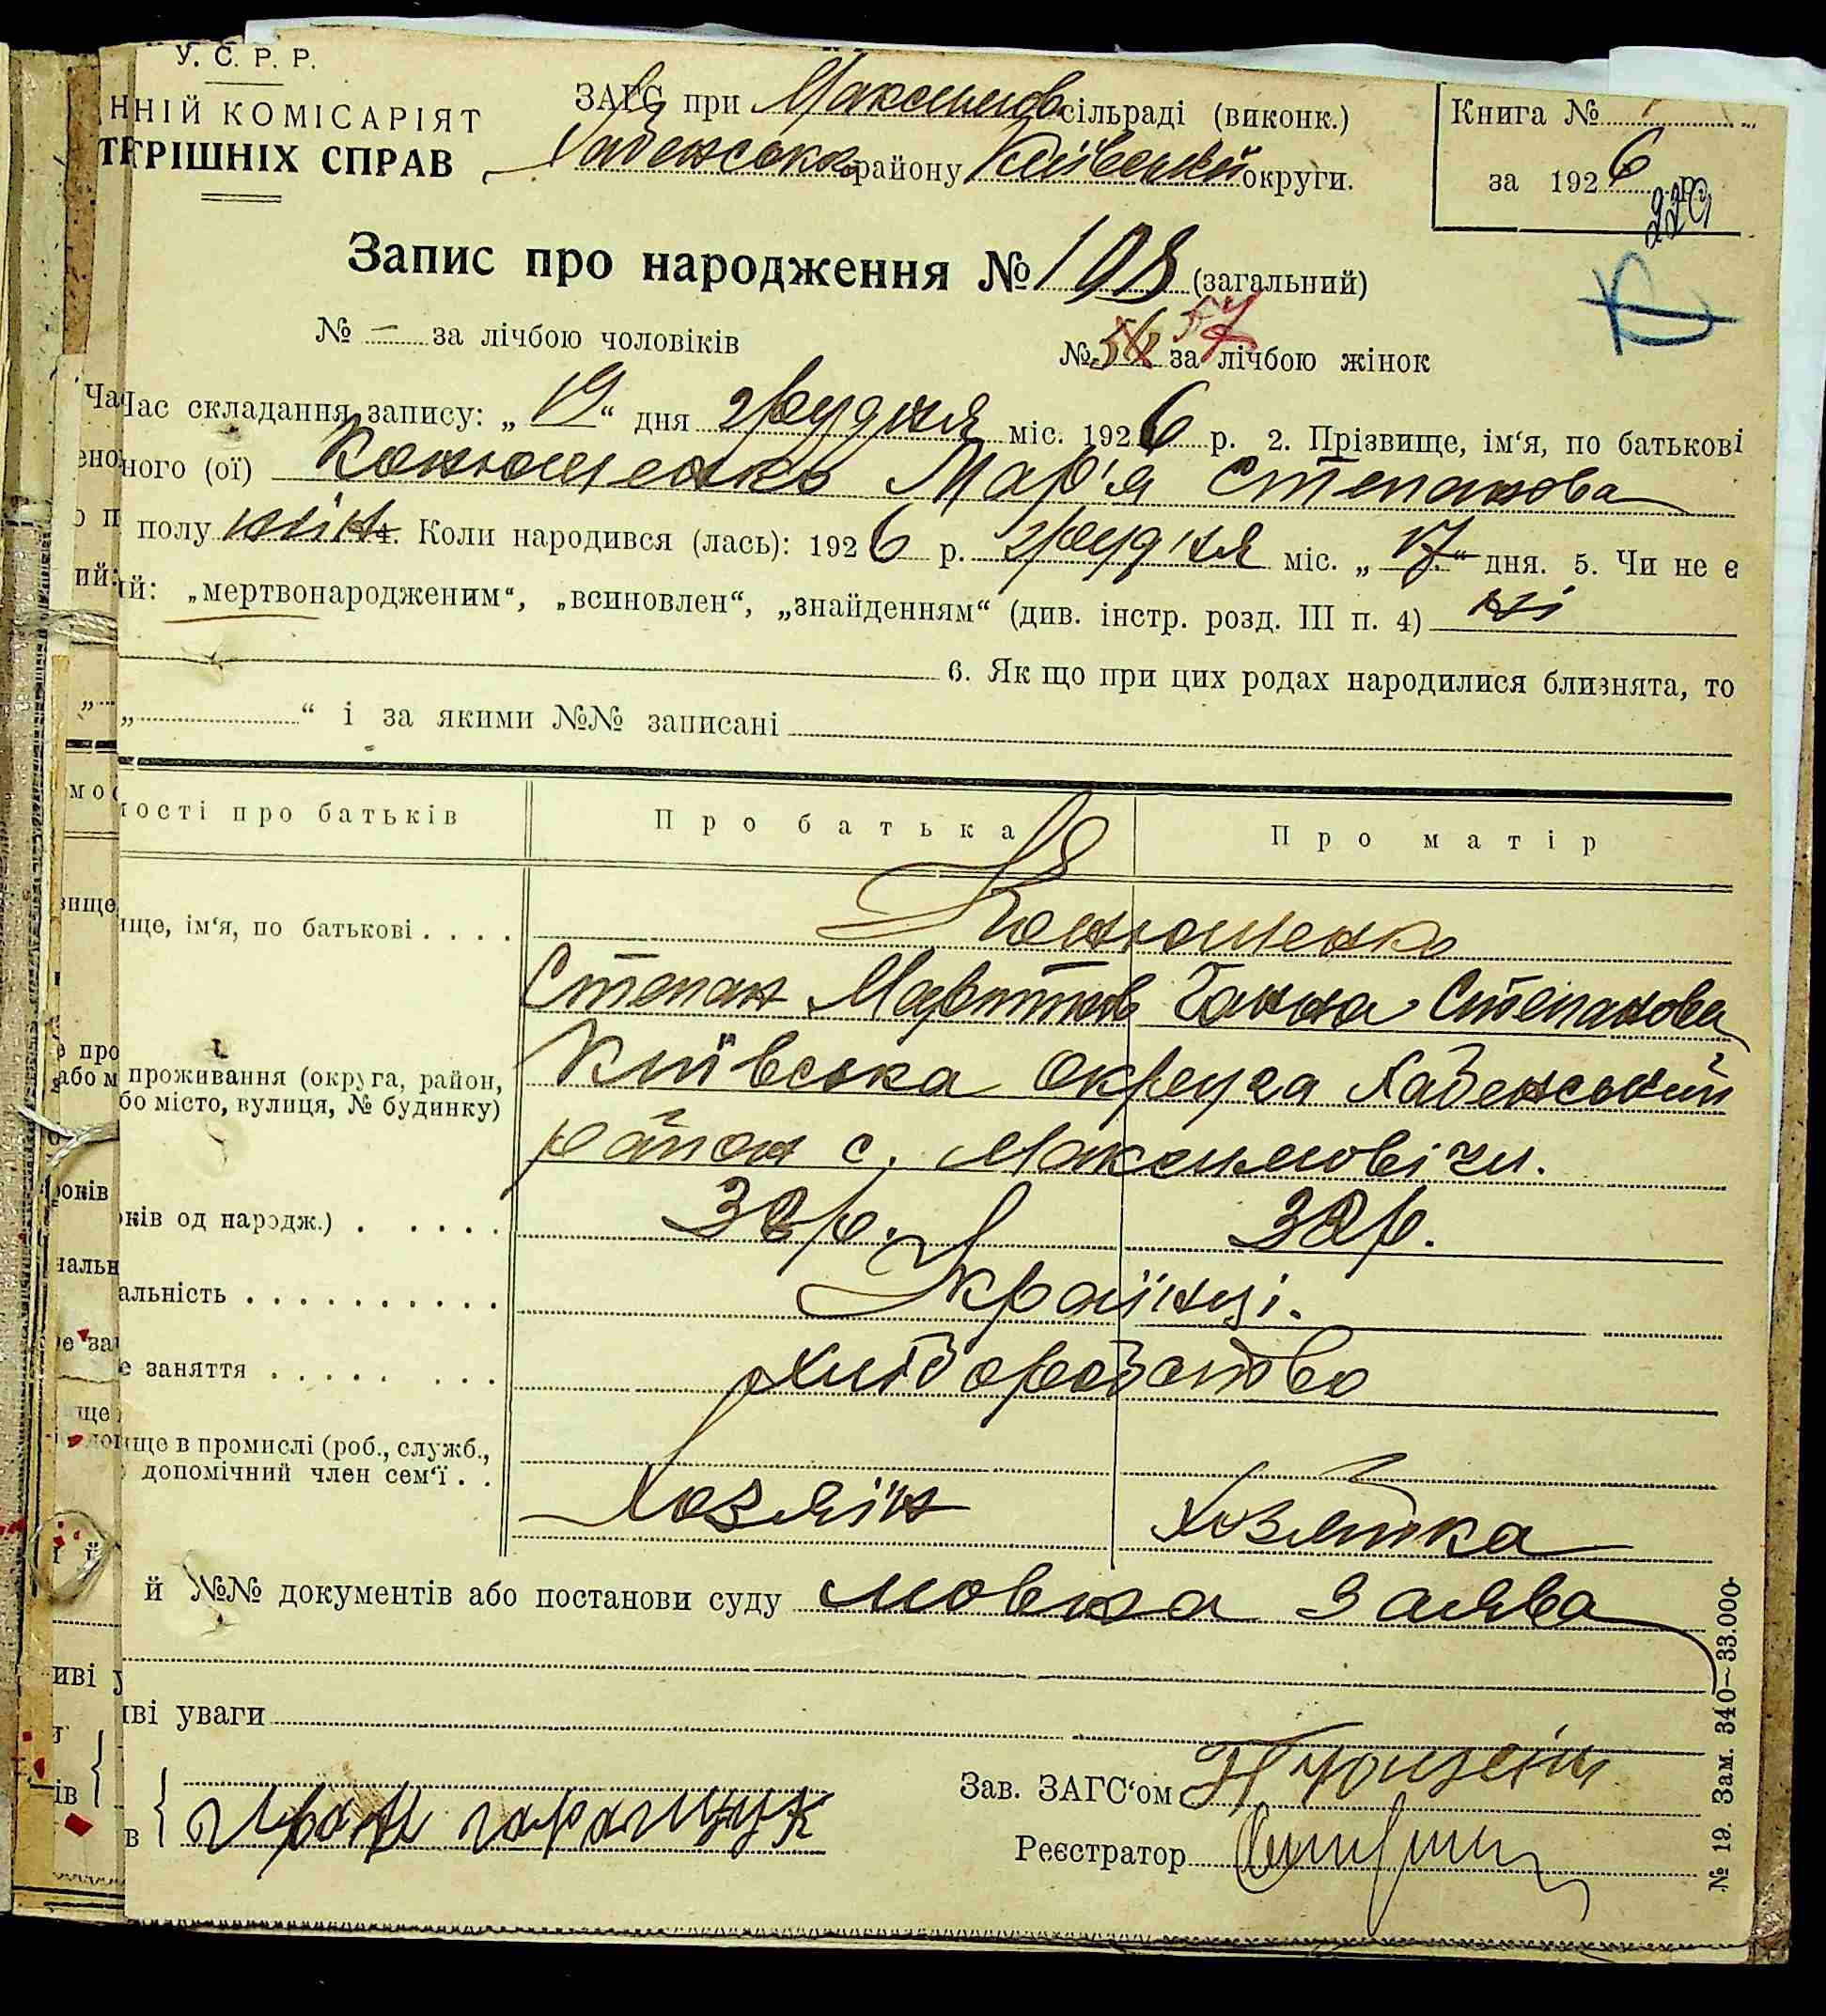 У. С. Р. Р.
ННІЙ КОМІСАРІЯТ
ТРІШНІХ СПРАВ
ЗАГС при Максимов сільраді (виконк.)
Хабенсько району Київської округи.
Книга №
за 1926 р.
229
Запис про народження № 108 (загальний)
№ — за лічбою чоловіків
№ 56 57 за лічбою жінок
Час складання запису: „19“ дня грудня міс. 1926 р. 2. Прізвище, ім‘я, по батькові
ного (ої) Конющенко Мар'я Степанова
полу жін. 4. Коли народився (лась): 1926 р. грудня міс. „17“ дня. 5. Чи не є
ій: „мертвонародженим“, „всиновлен“, „знайденням“ (див. інстр. розд. III п. 4) ні
6. Як що при цих родах народилися близнята, то
„ “ і за якими №№ записані
ості про батьків Про батька Про матір
ище, ім‘я, по батькові . . . . Конющенко
Степан Мартинов Ганна Степанова
проживання (округа, район, Київська округа Хабенський
бо місто, вулиця, № будинку)
район с. Максимовічи.
ків од народж.) . . . . . 32 р. 32 р.
альність . . . . . . . . . . Українці.
е заняття . . . . . . . . хліборобство
ще в промислі (роб., служб.,
допомічний член сем‘ї . .
Хозяїн Хозяйка
й №№ документів або постанови суду мовна заява
иві уваги
Зав. ЗАГС‘ом
в { Іван Гаращук
Реєстратор
№ 19. Зам. 340—33.000